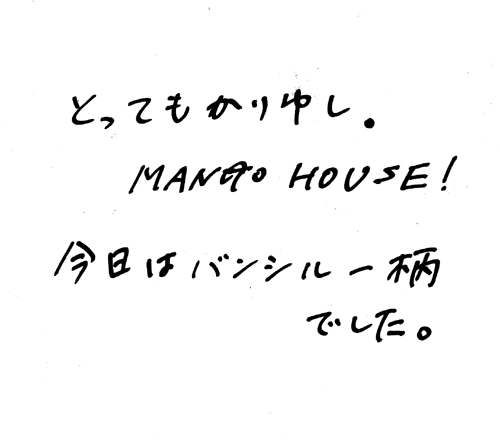 とってもかりゆし。
MANGO HOUSE!
今日はバンシルー柄
でした。